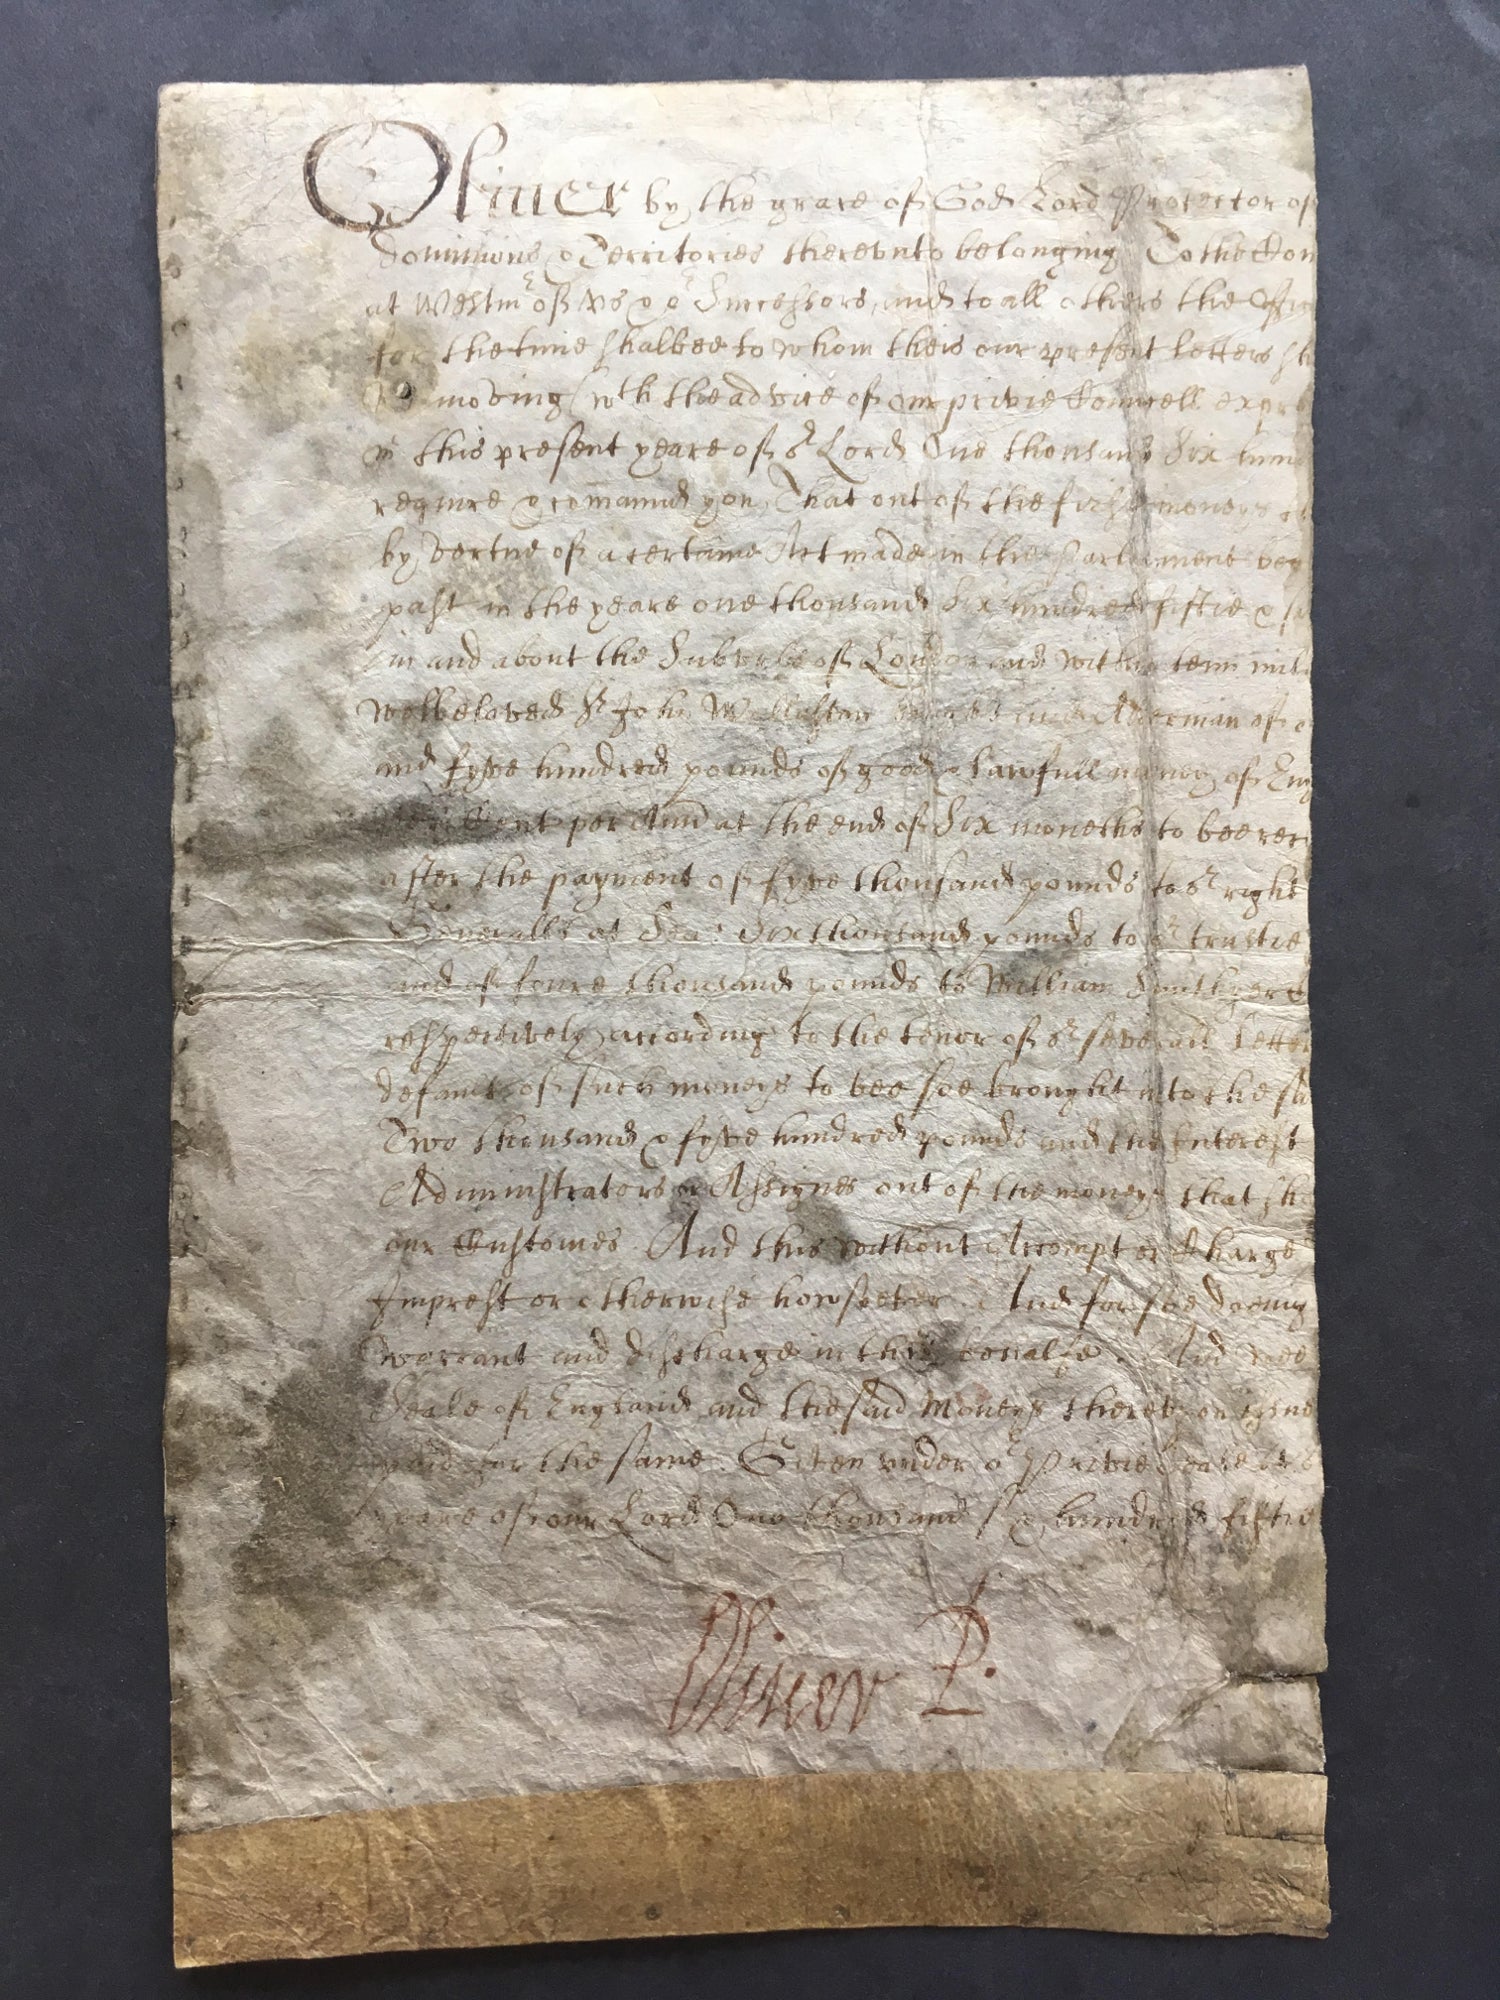 Oliver by the grace of God Lord Protector of
dominions & Territories therevnto belonging To the Com
at Westmr of vs & or Successors, and to all others the Offic
for the time shalbee to whom theis our present letters sh
moving (wth the advice of our privie Councell expr
in this present yeare of or Lord One thousand Six hun
require & comaund you, That out of the first moneys
by vertue of a certaine Act made in the Parliament beg
past in the yeare one thousand Six hundred fiftie & s
in and about the Suburbs of London and within tenn mil
welbeloved Sr John Wollaston Alderman of
and fyve hundred pounds of good & lawfull money of Eng
Cent per Annū at the end of Six moneths to bee rec
after the payment of fyve thousand pounds to or right
Generalls at Sea: Six thousand pounds to or trustie
and of foure thousand pounds to William
respectively, according to the tenor of or severall Letter
default of such moneys to bee soe brought into the sd
Two thousand & fyve hundred pounds and the Interest
Administrators or Assignes out of the moneys that sh
our Customes. And this without Accompt or Charge
Imprest or otherwise howsoever. And for soe doeing
warrant and discharge in this behalfe. And
Seale of England and the said Moneys therevpon issue
paid for the same. Given vnder or Privie Seale at
yeare of our Lord One thousand Six hundred fiftie
Oliver P.